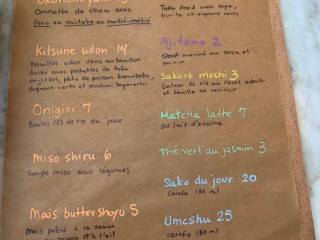 Omelette de chou avec
Porc ou shiitake ou
Kitsune udon 14
Nouilles udon dans un bouillon
dashi avec pochettes de tofu
signant verts et shichimi togarashi
Onigiri 7
Boules (2) de riz du jour
Miso shiru 6
Soupe miso aux légumes
Maïs butter shoyu 5
Maïs poêlé à la sauce
et à l'ail
Tofu froid avec soya,
bonito et oignons verts
Ajitama 2
Oeuf mariné au soya et
mirin
Sakura mochi 3
Gâteau de riz aux fèves adzuki
et feuille de cerisier
Matcha latte 7
Au lait d'avoine
Thé vert au jasmin 3
Sake du jour 20
Carafe 180 ml
Umeshu 25
carafe 180 ml